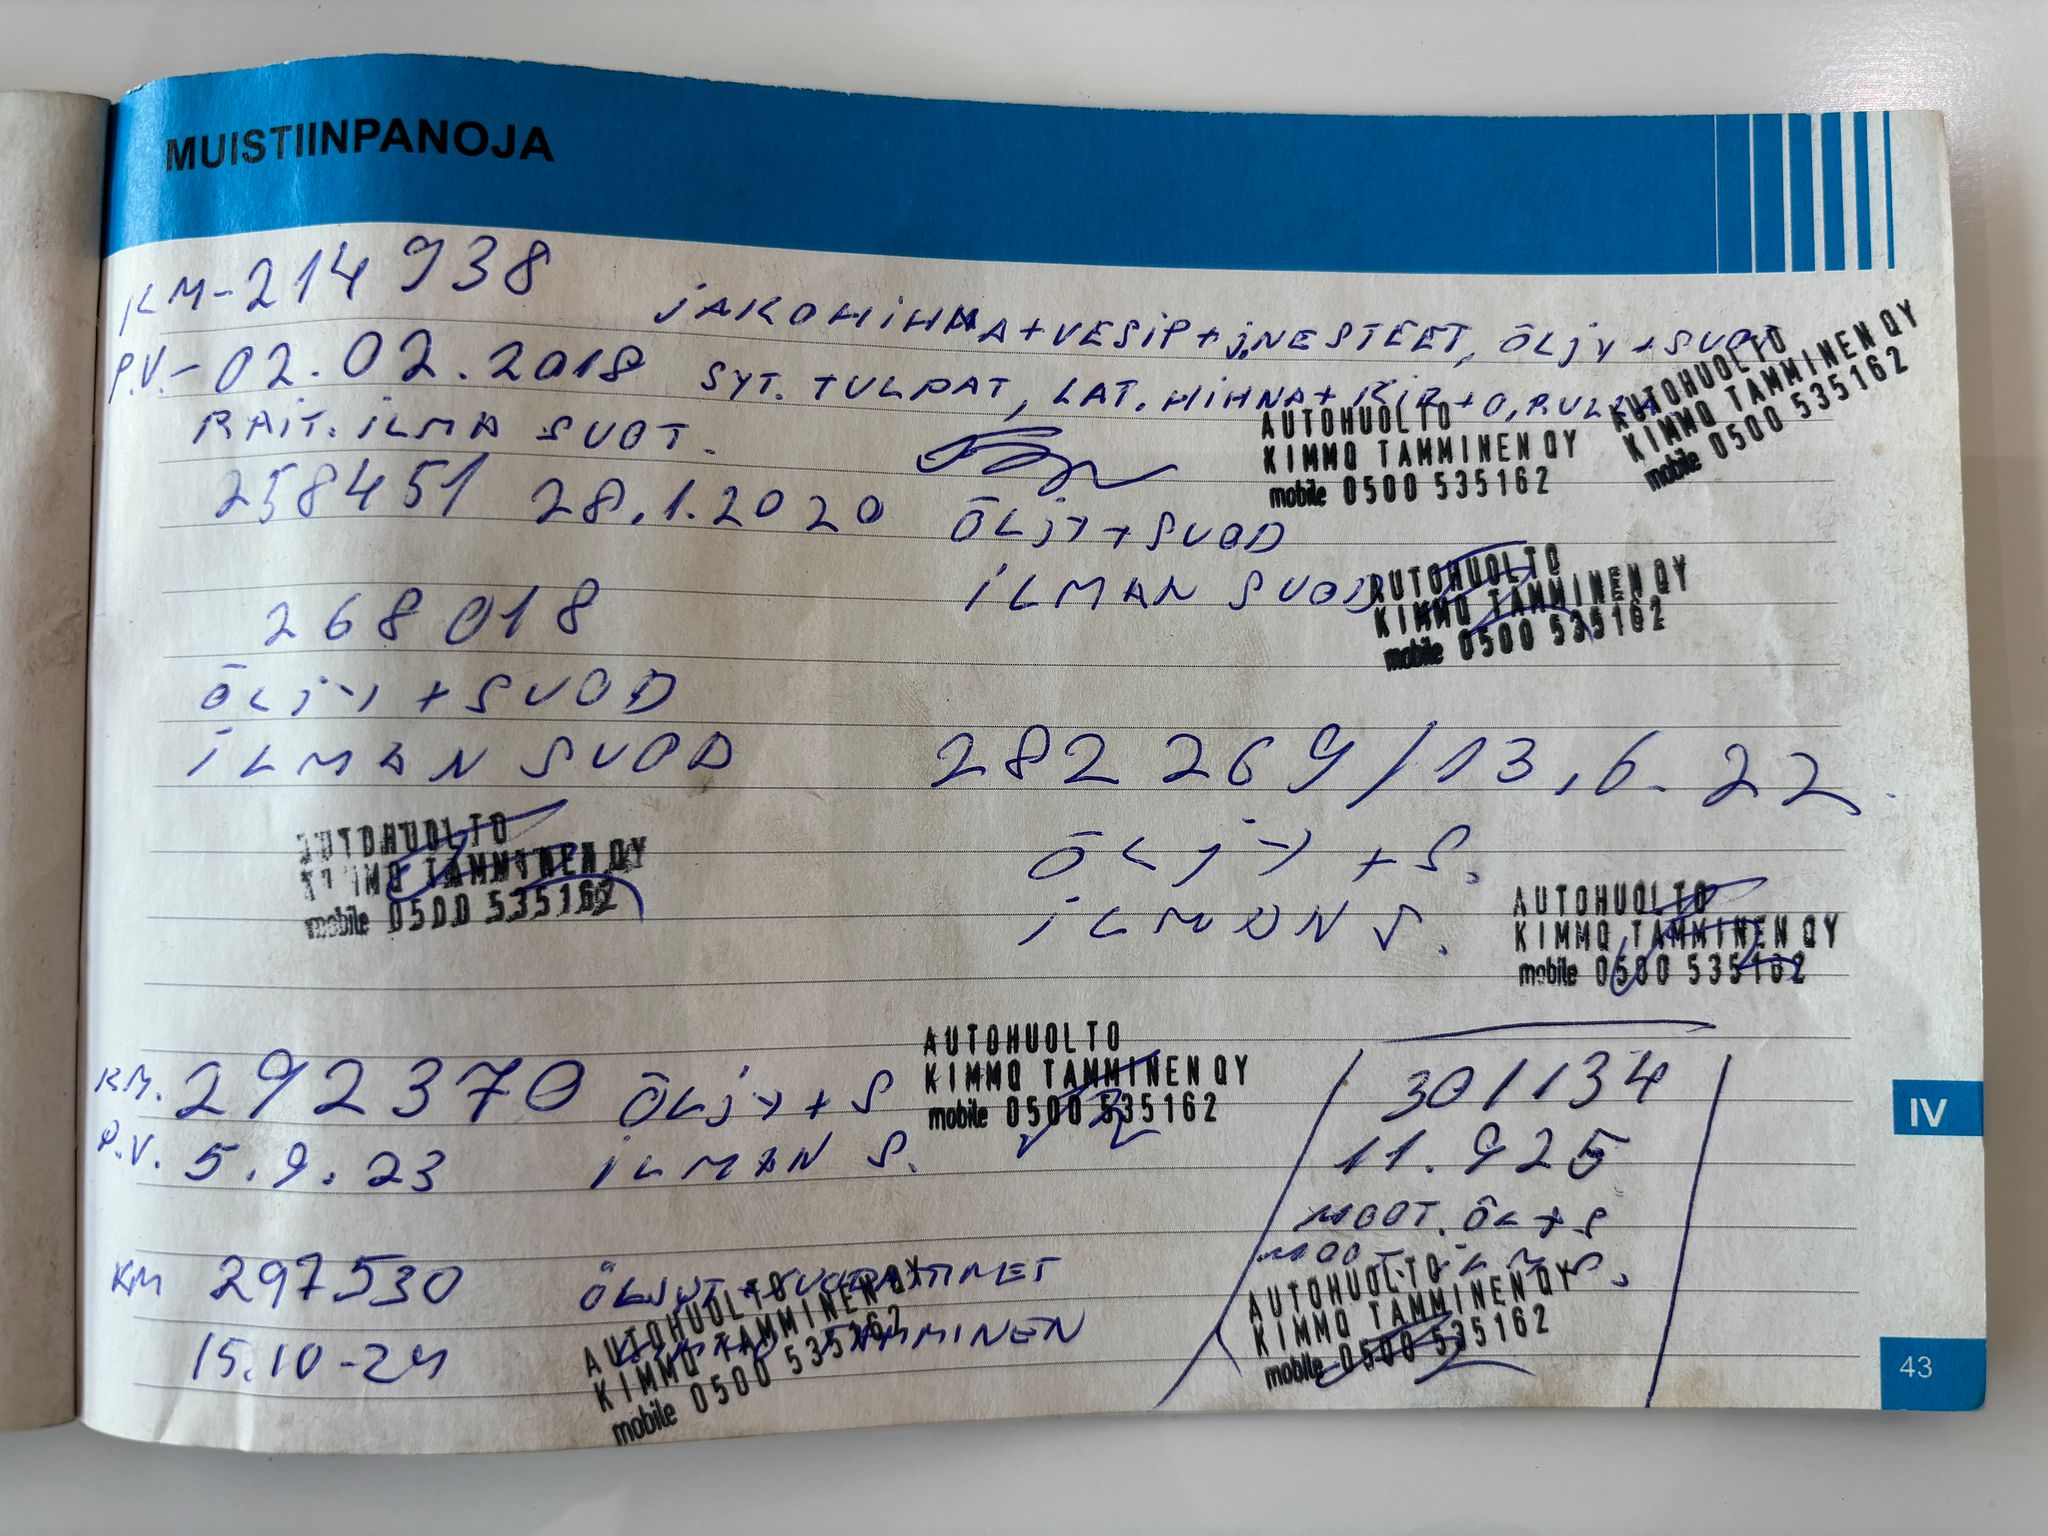 MUISTIINPANOJA
KM-214 938 JAKOHIHNA+VESIP+J.NESTEET, ÖLJY+SUOD
P.V.-02.02.2018 SYT. TULPAT, LAT. HIHNA+KIR+O.RULLA
RAIT. ILMA SUOT.
AUTOHUOLTO
KIMMO TAMMINEN OY
mobile 0500 535162
AUTOHUOLTO
KIMMO TAMMINEN OY
mobile 0500 535162
258451 28.1.2020 ÖLJY+SUOD
ILMAN SUOD
AUTOHUOLTO
KIMMO TAMMINEN OY
mobile 0500 535162
268 018
ÖLJY+SUOD
ILMAN SUOD
AUTOHUOLTO
KIMMO TAMMINEN OY
mobile 0500 535162
282 269/13.6.22.
ÖLJY+S.
ILMAN S.
AUTOHUOLTO
KIMMO TAMMINEN OY
mobile 0500 535162
KM. 292370 ÖLJY+S
P.V. 5.9.23 ILMAN S.
AUTOHUOLTO
KIMMO TAMMINEN OY
mobile 0500 535162
301134
11.925
MOOT. ÖL+S
MOOT. ILM S.
AUTOHUOLTO
KIMMO TAMMINEN OY
mobile 0500 535162
KM 297530 ÖLJYT+SUODATTIMET
15.10-24 TAMMINEN
AUTOHUOLTO
KIMMO TAMMINEN OY
mobile 0500 535162
IV
43